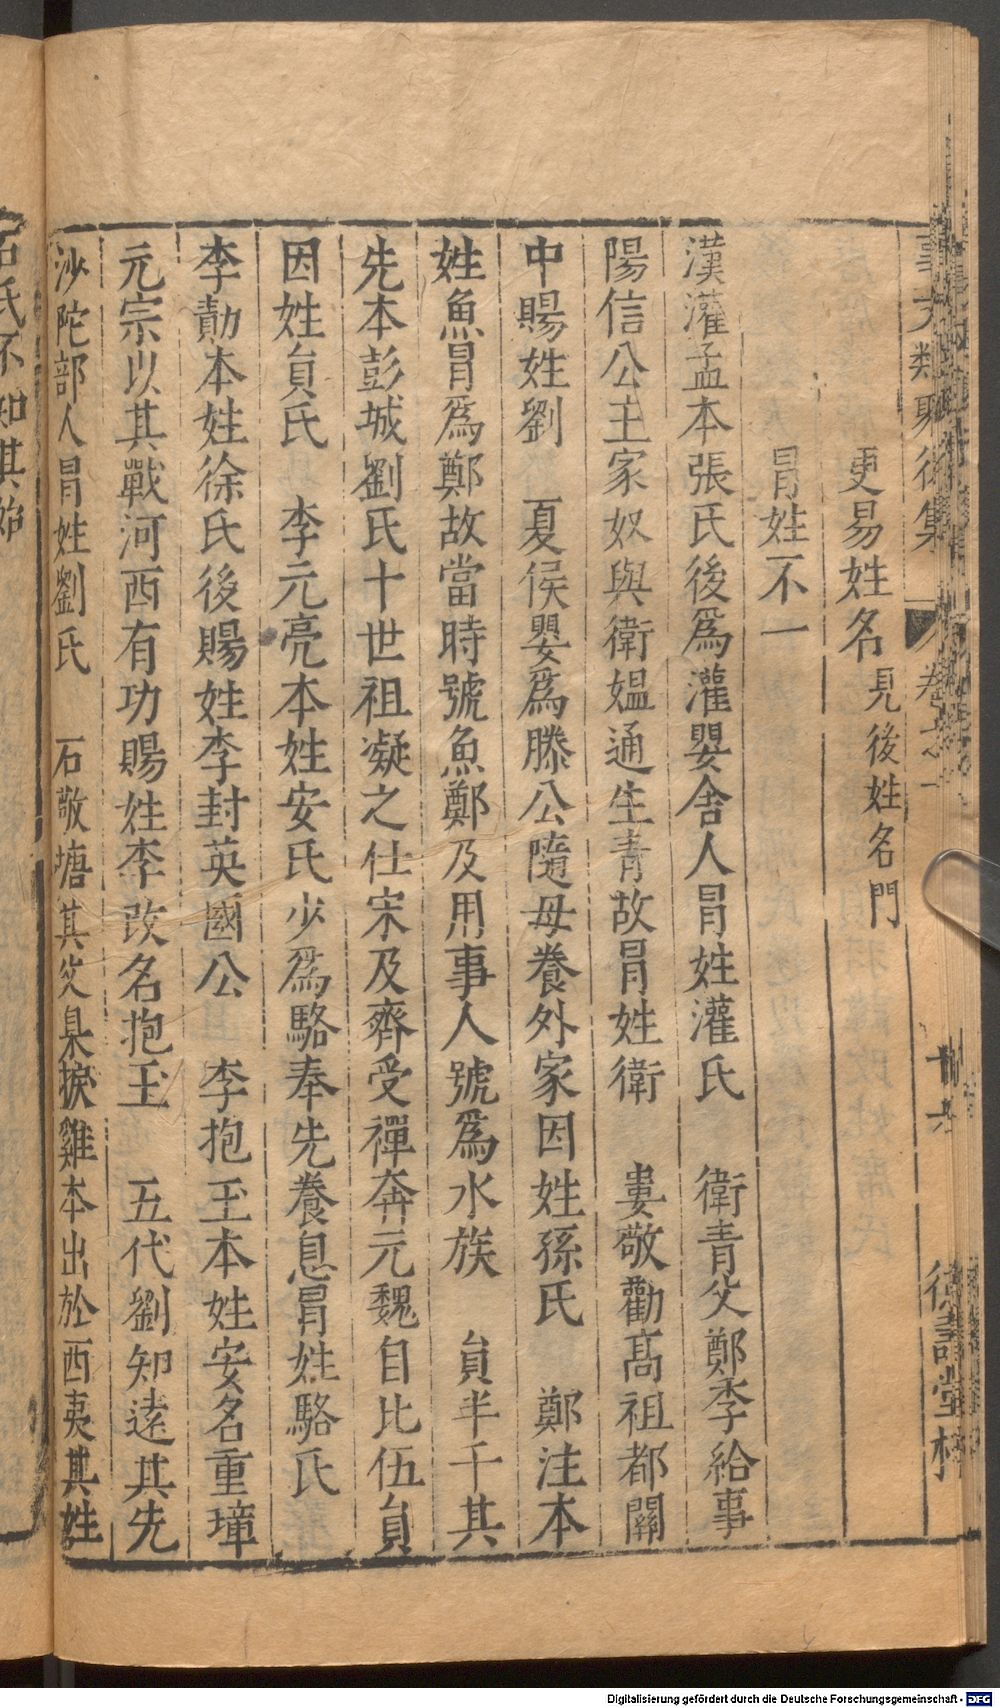 事文類聚後集 卷之一 德壽堂梓
更易姓名 見後姓名門
冒姓不一
漢灌孟本張氏後爲灌嬰舍人冒姓灌氏 衛青父鄭季給事
陽信公主家奴與衛媼通生青故冒姓衛 婁敬勸髙祖都關
中賜姓劉 夏侯嬰爲滕公隨母養外家因姓孫氏 鄭注本
姓魚冒爲鄭故當時號魚鄭及用事人號爲水族 貟半千其
先本彭城劉氏十世祖凝之仕宋及齊受禪奔元魏自比伍貟
因姓貟氏 李元亮本姓安氏少爲駱奉先養息冒姓駱氏
李勣本姓徐氏後賜姓李封英國公 李抱玉本姓安名重璋
元宗以其戰河西有功賜姓李改名抱玉 五代劉知遠其先
沙陀部人冒姓劉氏 石敬塘其父臬捩雞本出於西夷其姓
石氏不知其始
Digitalisierung gefördert durch die Deutsche Forschungsgemeinschaft - DFG